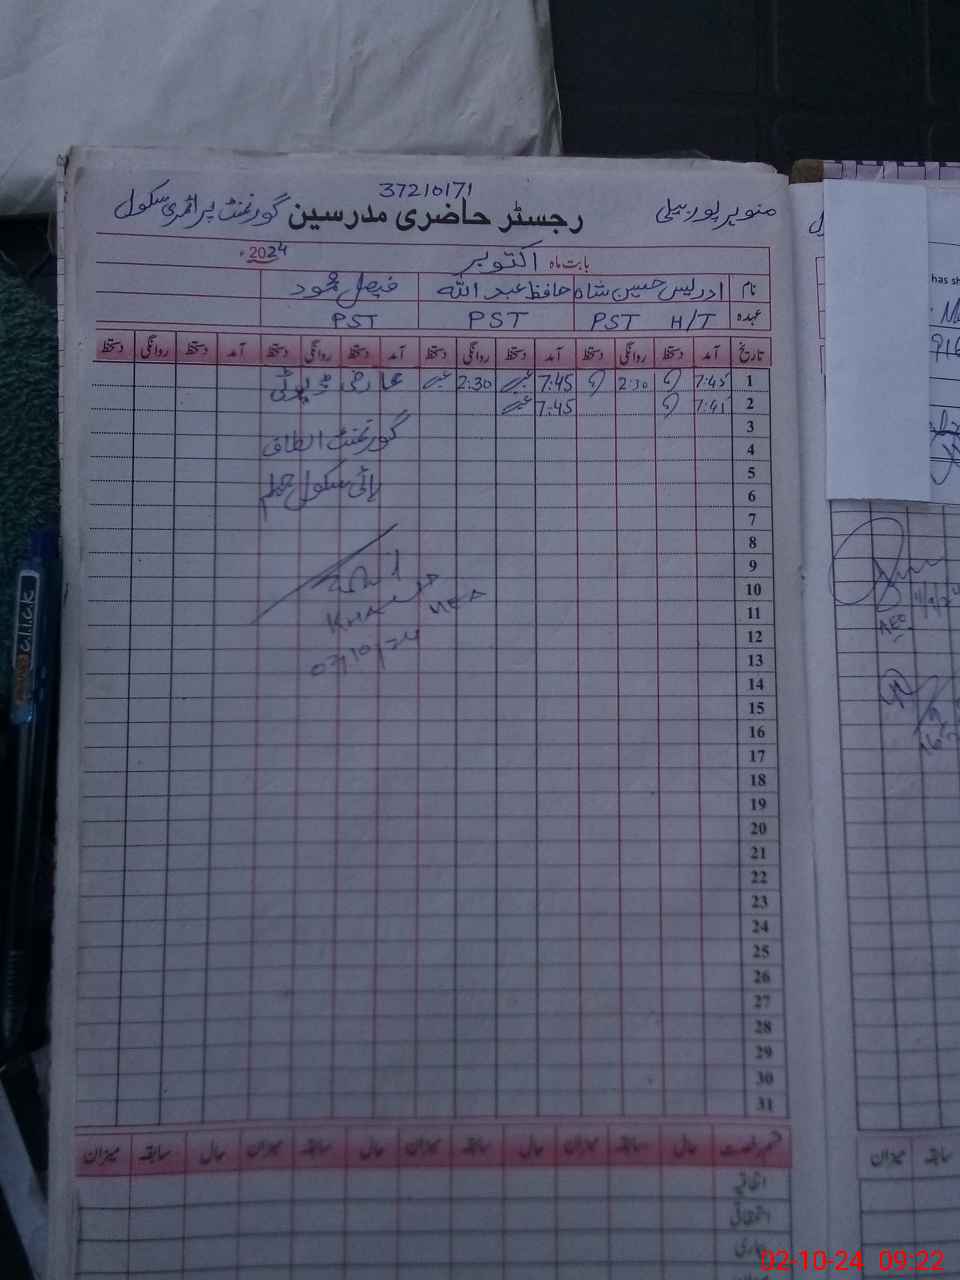 37210171
منویر پور بیلی رجسٹر حاضری مدرسین گورنمنٹ پرائمری سکول
بابت ماہ اکتوبر 2024ء
نام ادریس حسین شاہ حافظ عبد اللہ فیصل محمود
عہدہ H/T PST PST PST
تاریخ آمد دستخط روانگی دستخط آمد دستخط روانگی دستخط آمد دستخط روانگی دستخط آمد دستخط روانگی دستخط
1 7:45 2:30 7:45 2:30 عارضی ڈیوٹی
2 7:45 7:45
3
گورنمنٹ الطاف
4
5
ہائی سکول جہلم
6
7
8
9
10
11
12
02/10/24
13
14
15
16
17
18
19
20
21
22
23
24
25
26
27
28
29
30
31
قسم رخصت حال سابقہ میزان حال سابقہ میزان حال سابقہ میزان حال سابقہ میزان
اتفاقیہ
استحقاقی
بیماری
has sh
916
AEO
میزان سابقہ
CLICK
02-10-24 09:22